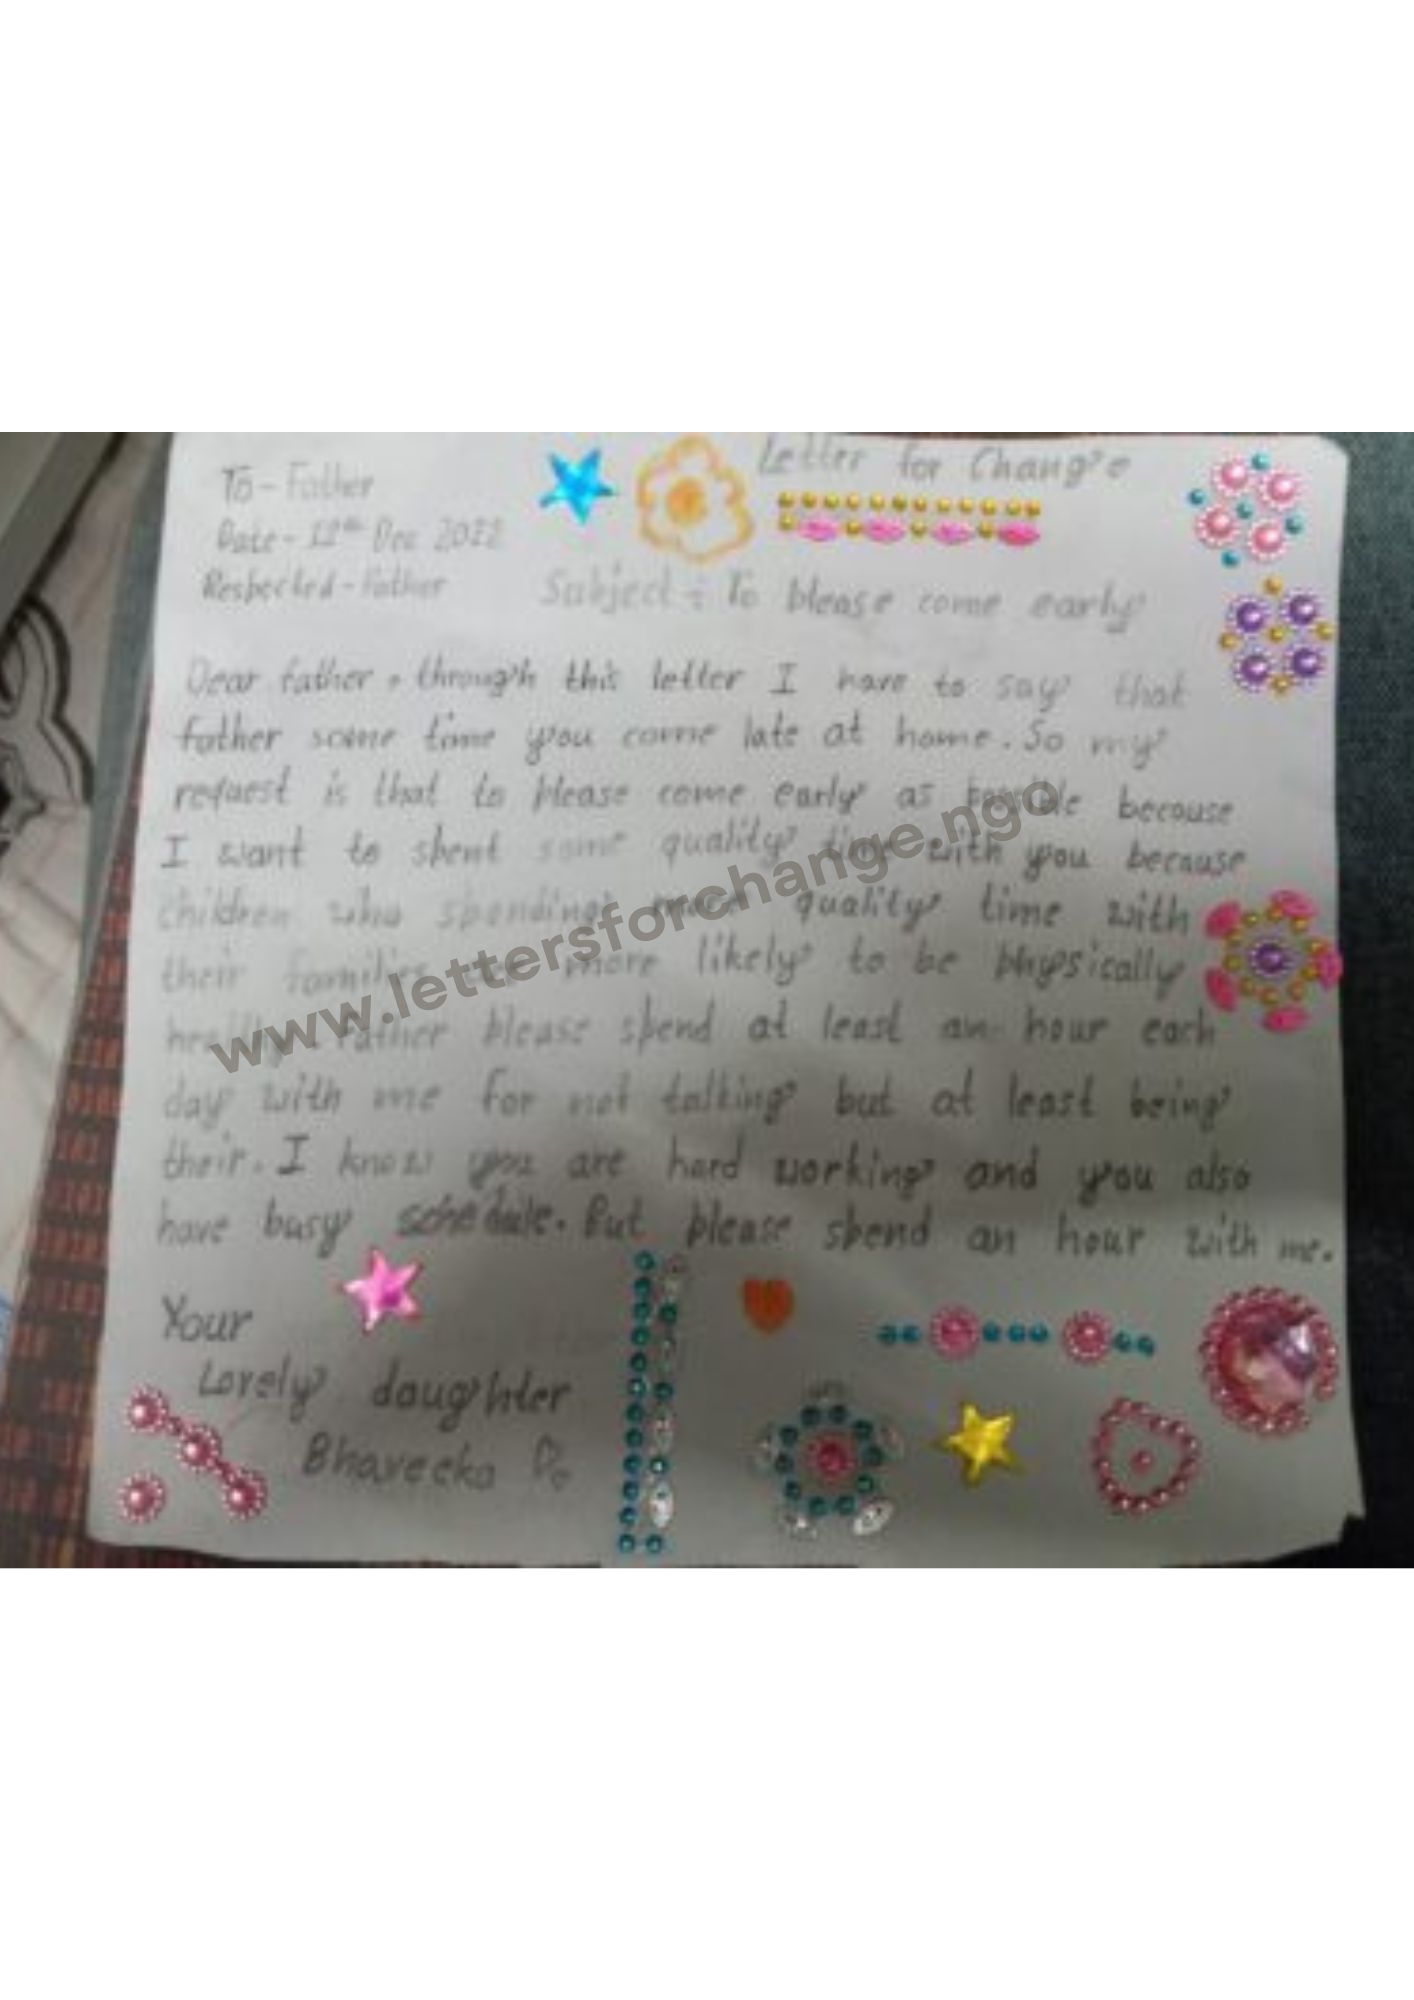 Letter for Change
To - Father
Date - 12th Dec 2022
Respected - Father
Subject :- To please come early
Dear father, through this letter I have to say that
father some time you come late at home. So my
request is that to please come early as possible because
I want to spent some quality time with you because
children who spending more quality time with
their families are more likely to be physically
healthy. Father please spend at least an hour each
day with me for not talking but at least being
their. I know you are hard working and you also
have busy schedule. But please spend an hour with me.
Your
Lovely daughter
Bhaveeka
www.lettersforchange.ngo